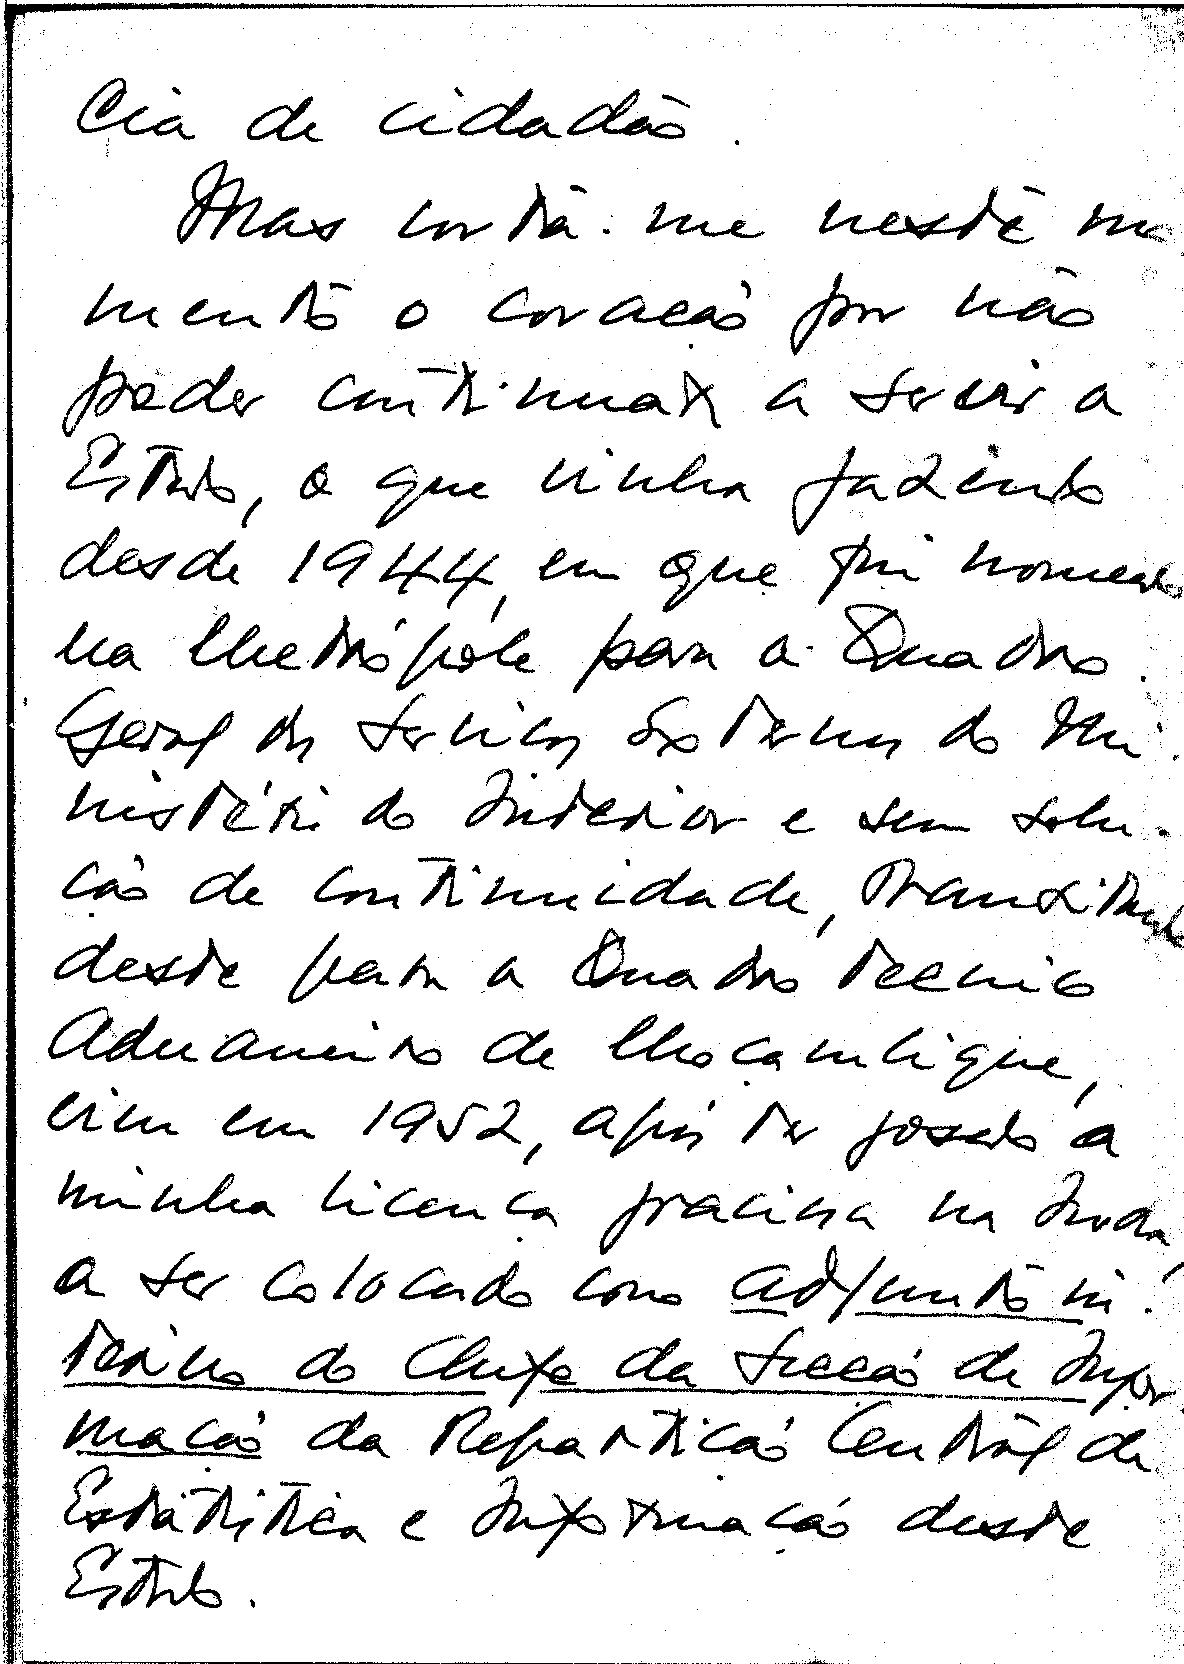 cia de cidadão.
Mas corta-me neste mo
mento o coração por não
poder continuar a servir o
Estado, o que vinha fazendo
desde 1944, em que fui nomeado
na Metrópole para o Quadro
Geral dos Serviços Externos do Mi-
nistério do Interior e sem solu-
ção de continuidade, transitando
deste para o Quadro Técnico
Aduaneiro de Moçambique,
vim em 1952, após ter gosado a
minha licença graciosa na Índia,
a ser colocado como adjunto in-
terino do Chefe da Secção de Infor
mação da Repartição Central de
Estatística e Informação deste
Estado.